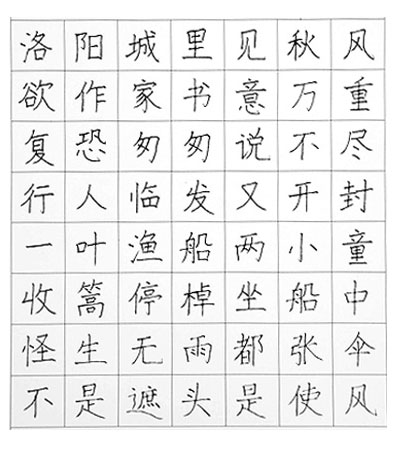 洛阳城里见秋风
欲作家书意万重
复恐匆匆说不尽
行人临发又开封
一叶渔船两小童
收篙停棹坐船中
怪生无雨都张伞
不是遮头是使风